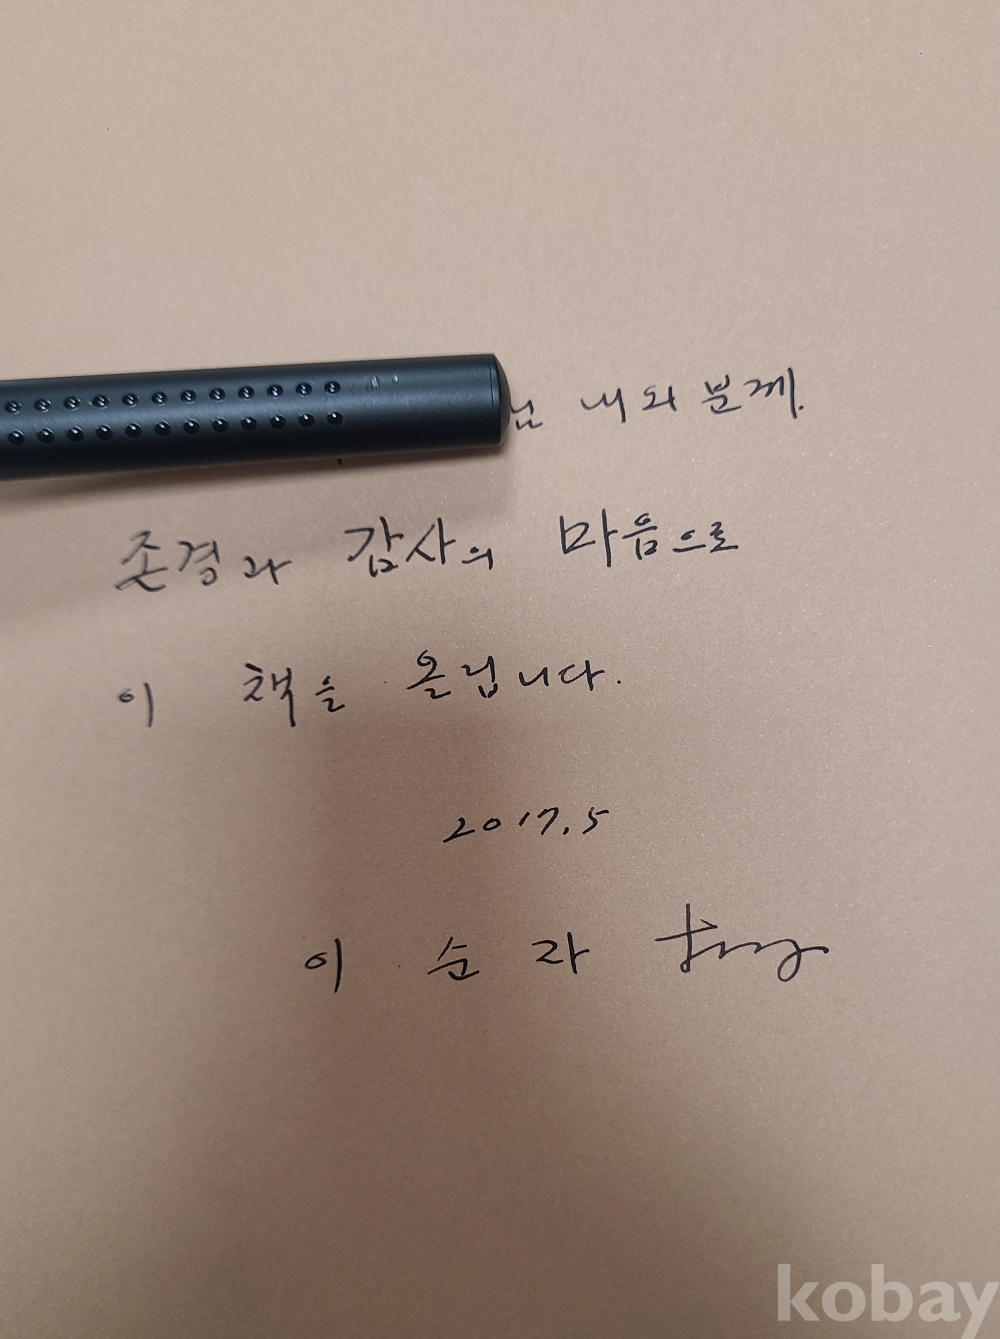 님 내외분께.
존경과 감사의 마음으로
이 책을 올립니다.
2017.5
이 순 라
kobay